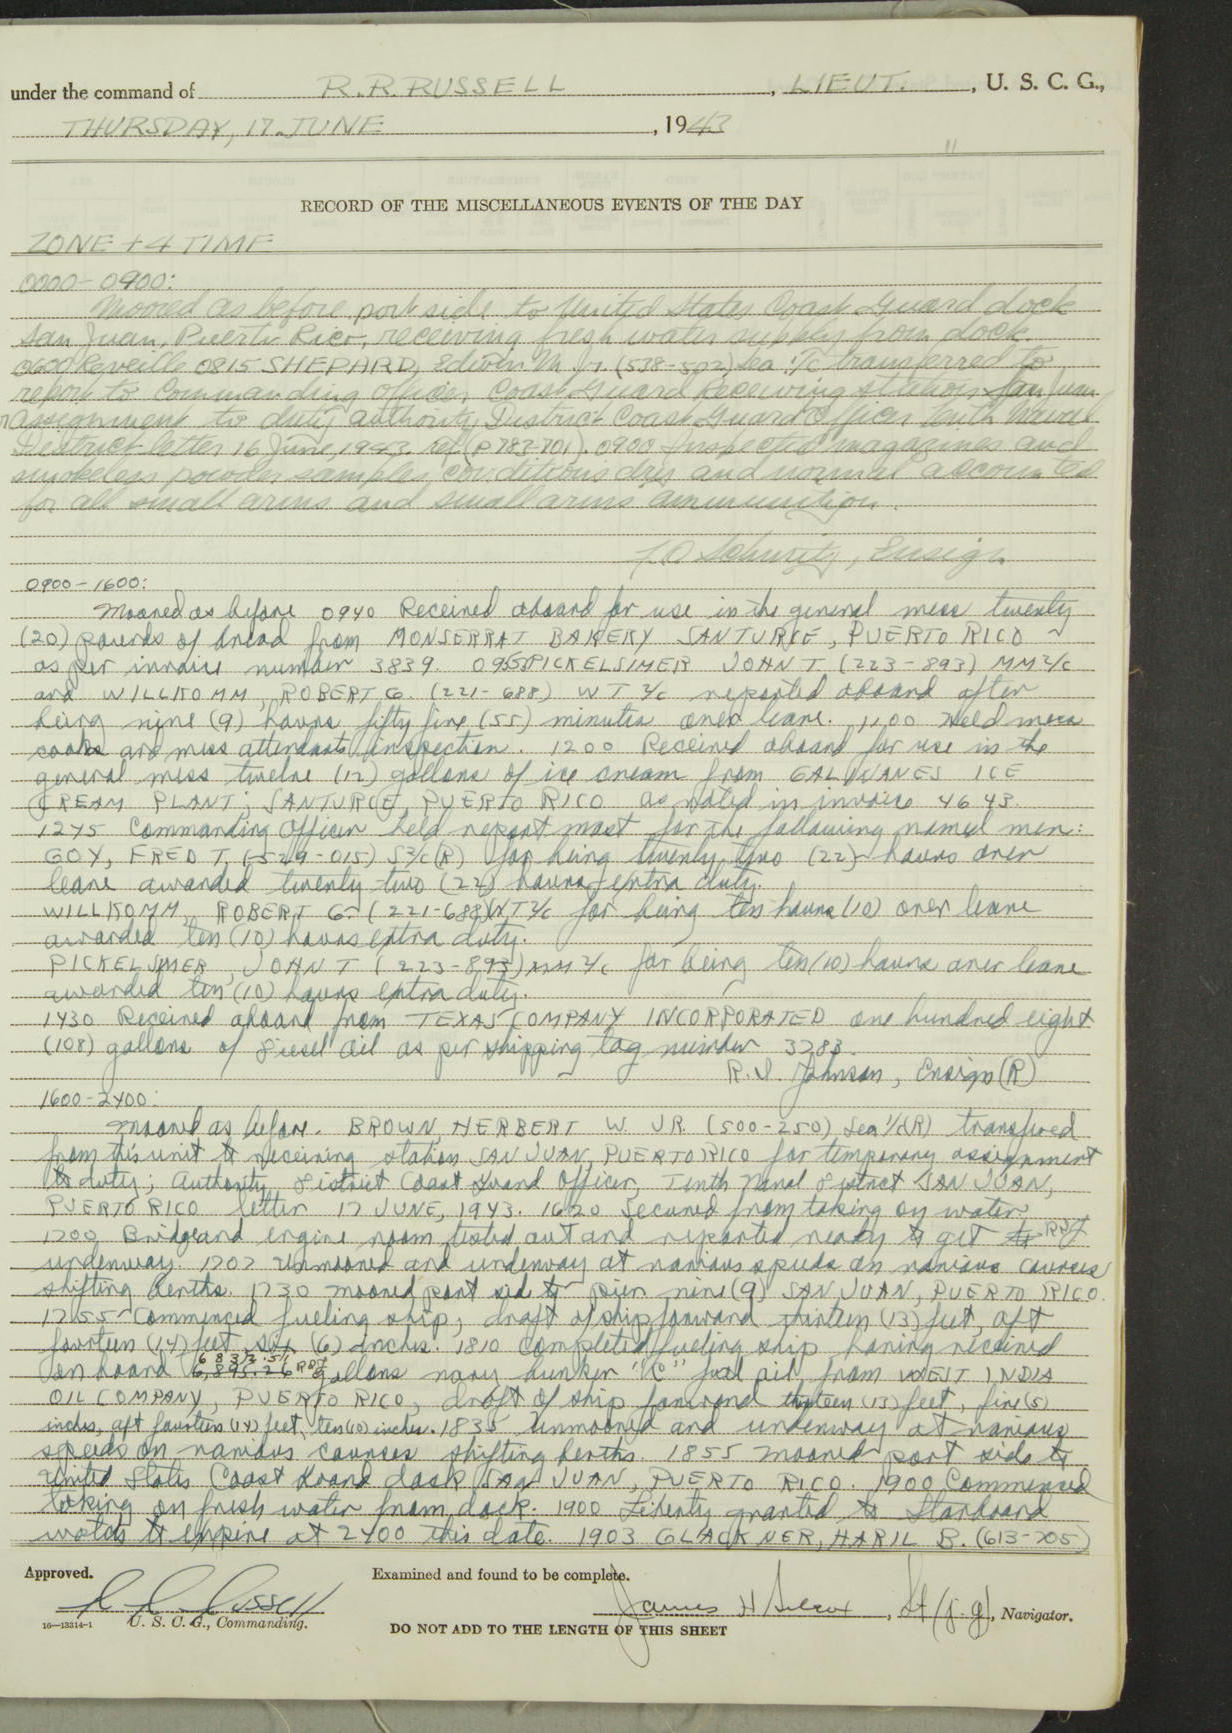 under the command of R.R. RUSSELL, LIEUT., U. S. C. G.,
THURSDAY, 17 JUNE, 1943
RECORD OF THE MISCELLANEOUS EVENTS OF THE DAY
ZONE +4 TIME
0000-0900:
Moored as before port side to United States Coast Guard dock
San Juan, Puerto Rico, receiving fresh water supply from dock.
0600 Reveille 0815 SHEPARD, Edwin M. Jr. (538-592) Sea 1/c transferred to
report to Commanding Officer, Coast Guard Receiving station San Juan
assignment to duty authority District Coast Guard Officer Tenth Naval
District letter 16 June, 1943. ref. (P 783-701). 0900 Inspected magazines and
smokeless powder samples, conditions dry and normal accounted
for all small arms and small arms ammunition.
Ensign
0900-1600:
Moored as before 0940 Received aboard for use in the general mess twenty
(20) pounds of bread from MONSERRAT BAKERY SANTURCE, PUERTO RICO
as per invoice number 3839. 0955 PICKELSIMER JOHN T (223-893) MM2/c
and WILLKOMM, ROBERT G. (221-688) WT 2/c reported aboard after
being nine (9) hours fifty five (55) minutes over leave. 1100 Held mess
cooks and mess attendants inspection. 1200 Received aboard for use in the
general mess twelve (12) gallons of ice cream from GALWANES ICE
CREAM PLANT; SANTURCE, PUERTO RICO as noted in invoice 4643.
1245 Commanding Officer held report mast for the following named men:
GOY, FRED T, (529-015) S2/c(R) for being twenty two (22) hours over
leave awarded twenty two (22) hours extra duty.
WILLKOMM, ROBERT G- (221-688) WT2/c for being ten hours (10) over leave
awarded ten (10) hours extra duty.
PICKELSIMER, JOHN T (223-893) MM 2/c for being ten (10) hours over leave
awarded ten (10) hours extra duty.
1430 Received aboard from TEXAS COMPANY INCORPORATED one hundred eight
(108) gallons of diesel oil as per shipping tag number 3283.
R. D. Johnson, Ensign (R)
1600-2400:
Moored as before. BROWN, HERBERT W. JR. (500-250) Sea 1/c(R) transfered
from this unit to receiving station SAN JUAN, PUERTO RICO for temporary assignment
to duty; authority District Coast Guard Officer, Tenth Naval District SAN JUAN,
PUERTO RICO letter 17 JUNE, 1943. 1620 Secured from taking on water
1700 Bridge and engine room tested out and reported ready to get
underway 1702 Unmoored and underway at various speeds on various courses
shifting berths. 1730 moored port side to pier nine (9) SAN JUAN, PUERTO RICO.
1755 Commenced fueling ship, draft of ship forward thirteen (13) feet, aft
fourteen (14) feet six (6) inches. 1810 completed fueling ship having received
on board 6832.51 6,895.26 gallons navy bunker "C" fuel oil, from WEST INDIA
OIL COMPANY, PUERTO RICO, draft of ship forward thirteen (13) feet, five (5)
inches, aft fourteen (14) feet, ten (10) inches. 1835 unmoored and underway at various
speeds on various courses shifting berths. 1855 moored port side to
United States Coast Guard dock SAN JUAN, PUERTO RICO. 1900 Commenced
taking on fresh water from dock. 1900 Liberty granted to Starboard
watch to expire at 2400 this date. 1903 GLACKNER, HARIL B. (613-705)
Approved.
Examined and found to be complete.
U. S. C. G., Commanding.
James H , Lt (j-g), Navigator.
16—13314-1
DO NOT ADD TO THE LENGTH OF THIS SHEET